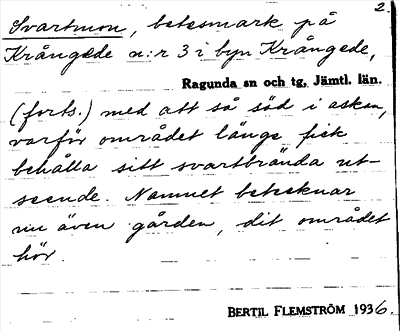 2.
Svartmon, betesmark på
Krångede n:r 3 i byn Krångede,
Ragunda sn och tg, Jämtl. län.
(forts.) med att så säd i askan,
varför området länge fick
behålla sitt svartbrända ut-
seende. Namnet betecknar
nu även gården, dit området
hör.
BERTIL FLEMSTRÖM 1936.